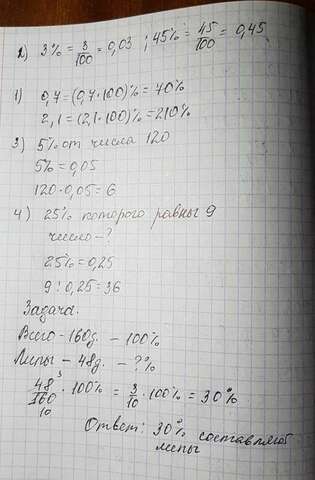 2) 3% = 3/100 = 0,03 ; 45% = 45/100 = 0,45
1) 0,7 = (0,7·100)% = 70%
2,1 = (2,1·100)% = 210%
3) 5% от числа 120
5% = 0,05
120·0,05 = 6
4) 25% которого равны 9
число - ?
25% = 0,25
9 : 0,25 = 36
Задача.
Всего - 160д. - 100%
Липы - 48д. - ?%
48 3/160 10 · 100% = 3/10 · 100% = 30%
Ответ: 30% составляют
липы